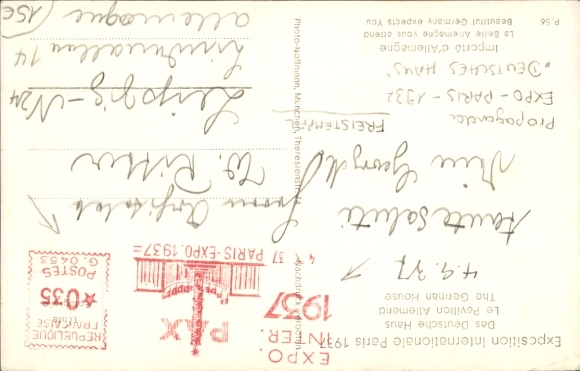 Exposition Internationale Paris 1937
Das Deutsche Haus
Le Pavillon Allemand
The German House
4.9.37
tante saluti
Propaganda
EXPO - PARIS - 1937
"DEUTSCHES HAUS"
Importé d'Allemagne
La Belle Allemagne vous attend
Beautiful Germany expects You
P.56
FREISTEMPEL
Photo-Hoffmann, München, Theresienstr. 74
Nachdruck verboten
EXPO.
INTER.
1937
PAX
4 9 37 PARIS-EXPO.1937=
REPUBLIQUE
FRANÇAISE
★035
POSTES
G.0455
W. Ritter
Leipzig-N24
14
Allemagne
(15€